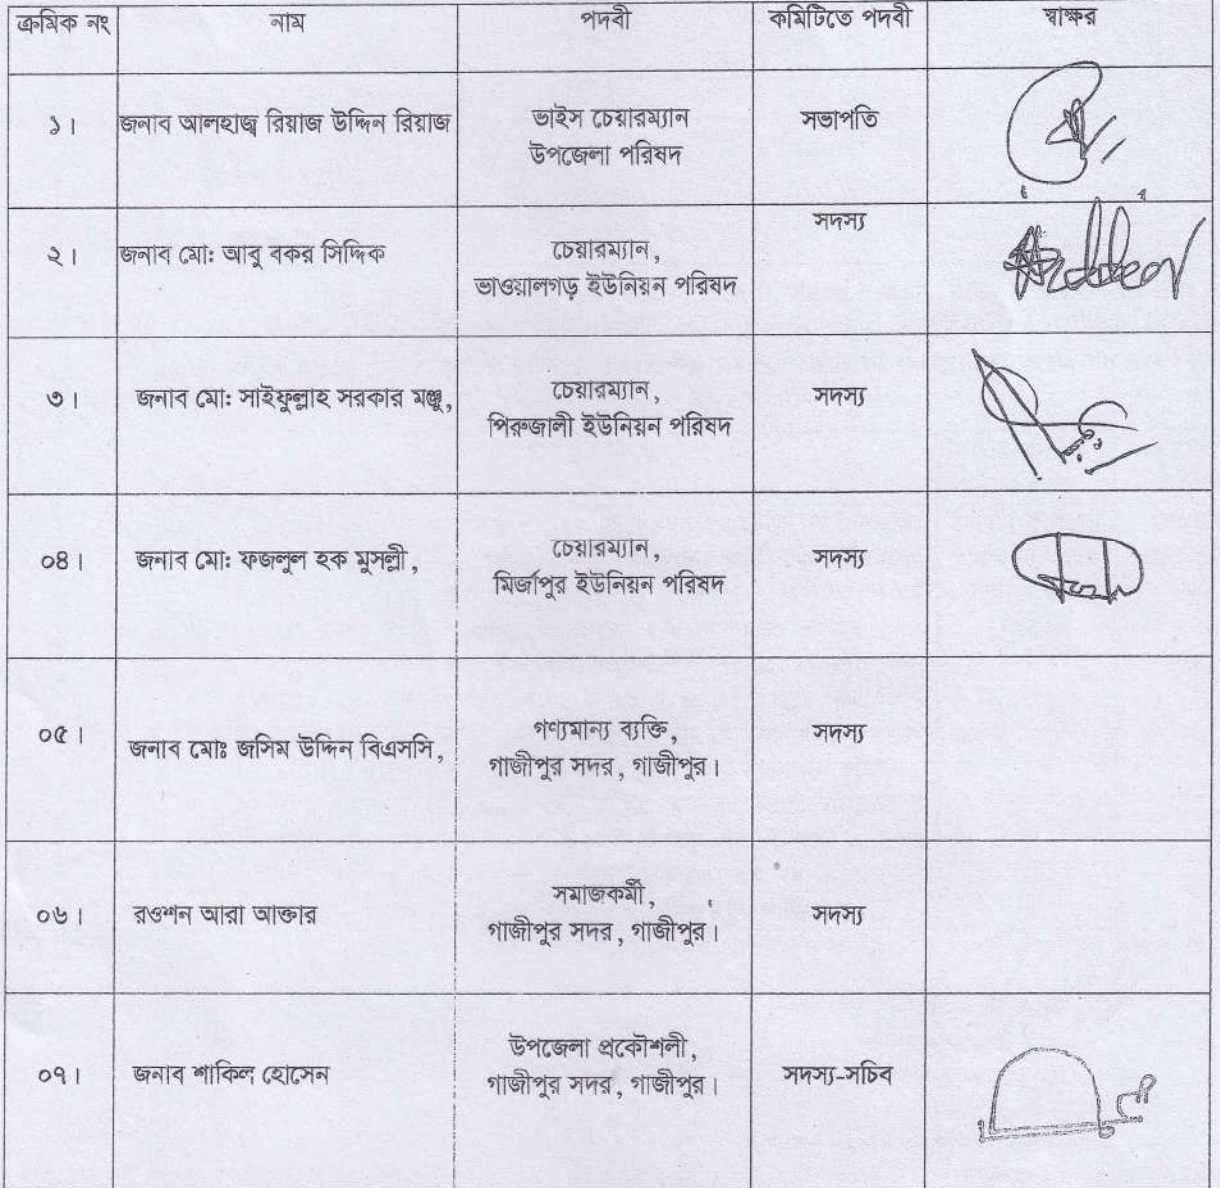 ক্রমিক নং নাম পদবী কমিটিতে পদবী স্বাক্ষর
১। জনাব আলহাজ্ব রিয়াজ উদ্দিন রিয়াজ ভাইস চেয়ারম্যান সভাপতি
উপজেলা পরিষদ
সদস্য
২। জনাব মো: আবু বকর সিদ্দিক চেয়ারম্যান,
ভাওয়ালগড় ইউনিয়ন পরিষদ
৩। জনাব মো: সাইফুল্লাহ সরকার মঞ্জু, চেয়ারম্যান, সদস্য
পিরুজালী ইউনিয়ন পরিষদ
০৪। জনাব মো: ফজলুল হক মুসল্লী, চেয়ারম্যান, সদস্য
মির্জাপুর ইউনিয়ন পরিষদ
০৫। জনাব মোঃ জসিম উদ্দিন বিএসসি, গণ্যমান্য ব্যক্তি, সদস্য
গাজীপুর সদর, গাজীপুর।
০৬। রওশন আরা আক্তার সমাজকর্মী, সদস্য
গাজীপুর সদর, গাজীপুর।
০৭। জনাব শাকিল হোসেন উপজেলা প্রকৌশলী, সদস্য-সচিব
গাজীপুর সদর, গাজীপুর।